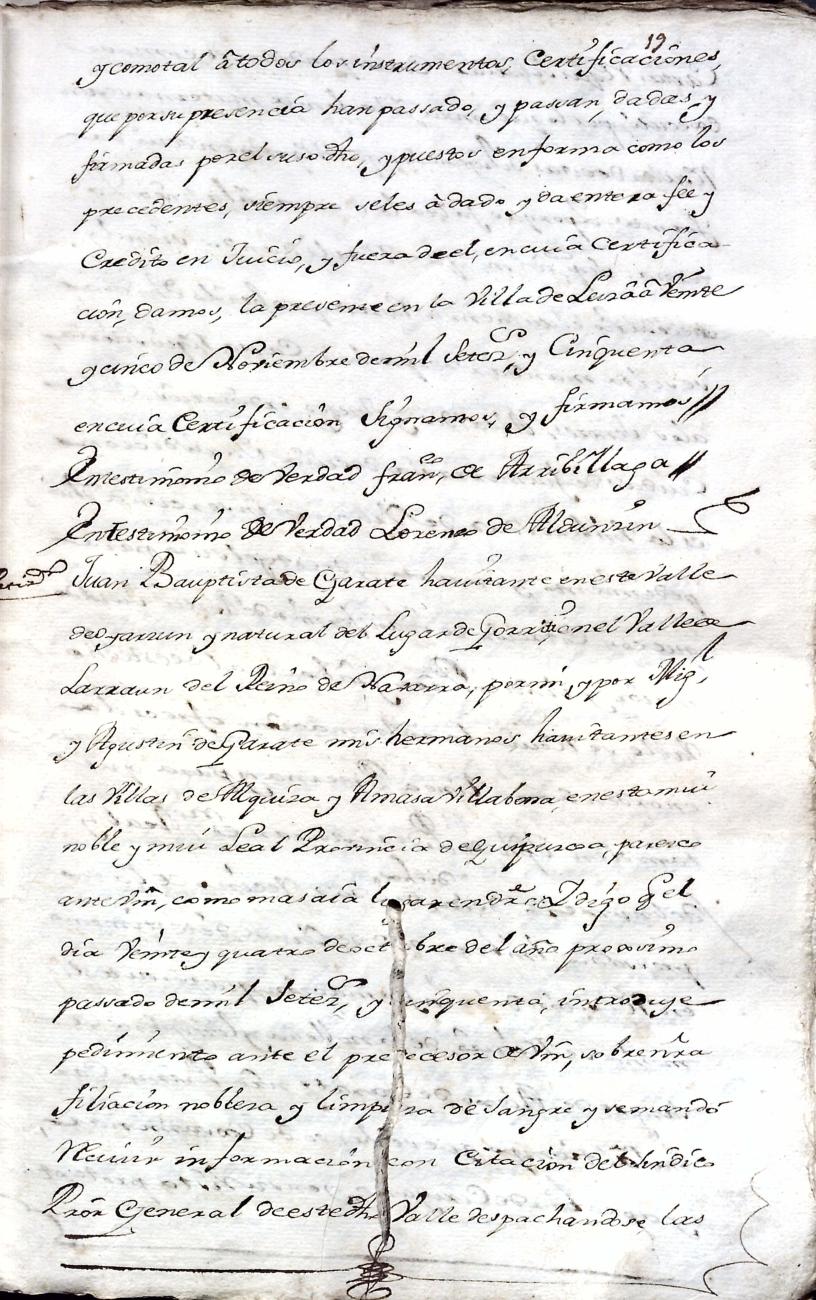 19
y como tal â todos los instrumentos, Certificaciones,
que por su presencia han passado, y passan, dadas, y
firmadas por el suso dho, y puestos en forma como los
precedentes, siempre se les à dado y da entera fee y
Credito en Juicio, y fuera de el, en cuia Certifica-
cion, damos, la presente en la Villa de Leiza â Veinte
y cinco de Noviembre de mil Setezs, y Cinquenta
en cuia Certificacion Signamos, y firmamos //
En testimonio de Verdad Franco, de Arribillaga //
En Testimonio de Verdad Lorenzo de Aldunzin
Juan Bauptista de Garate havitante en este Valle
de Oyarzun y natural del Lugar de Gorriti, en el Valle de
Larraun del Reino de Navarra, por mi, y por Migl,
y Agustin de Garate mis hermanos havitantes en
las Villas de Alquiza y Amasa Villabona, en esta mui
noble y mui Leal Provincia de Guipuzcoa, parezco
ante Vm, como mas aia lugar en dro, Y digo q el
dia Veinte y quatro de octubre del año proximo
passado de mil Setezs, y cinquenta, introduje
pedimiento ante el predecesor de Vm, sobre nra
filiacion nobleza y limpieza de Sangre y se mandó
Recivir informacion con Citacion del Sindico
Pror General de este dho Valle despachandose, las